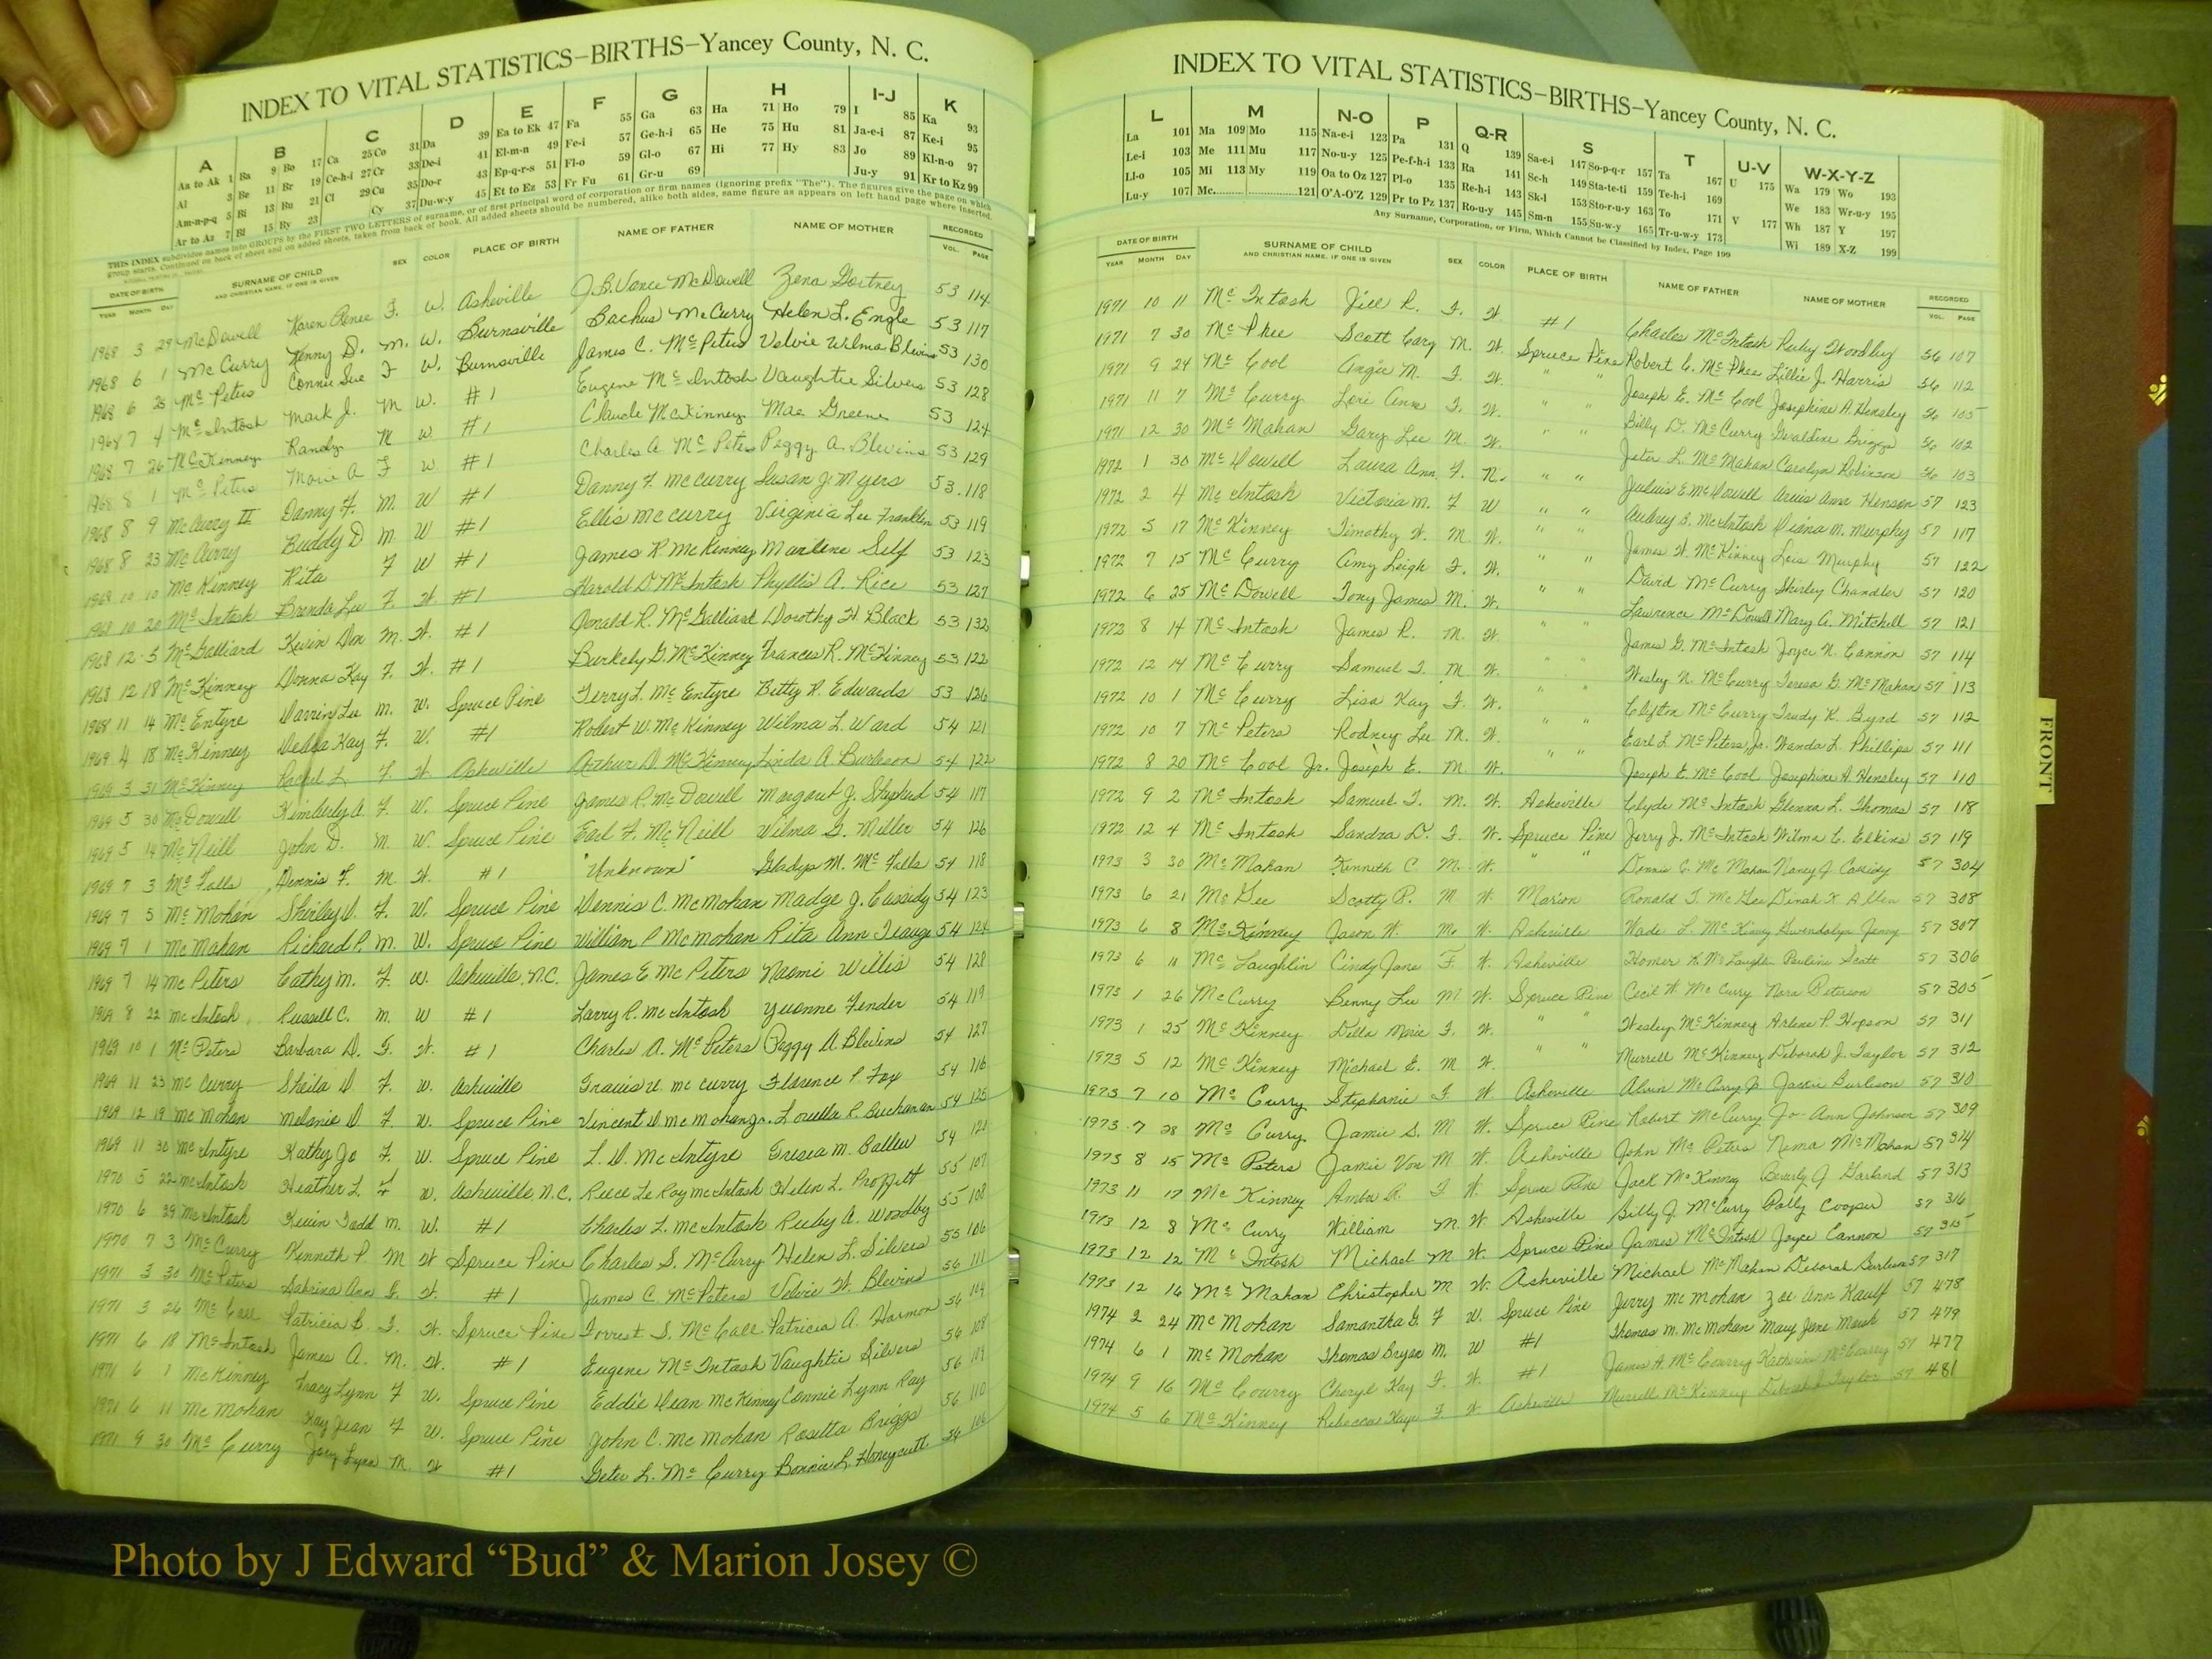 INDEX TO VITAL STATISTICS—BIRTHS—Yancey County, N. C.
A B C D E F G H I-J K
Aa to Ak 1 Ba 9 Bo 17 Ca 25 Co 31 Da 39 Ea to Ek 47 Fa 55 Ga 63 Ha 71 Ho 79 I 85 Ka 93
Al 3 Be 11 Br 19 Ce-h-i 27 Cr 33 De-i 41 El-m-n 49 Fe-i 57 Ge-h-i 65 He 75 Hu 81 Ja-e-i 87 Ke-i 95
Am-n-p-q 5 Bi 13 Bu 21 Cl 29 Cu 35 Do-r 43 Ep-q-r-s 51 Fl-o 59 Gl-o 67 Hi 77 Hy 83 Jo 89 Kl-n-o 97
Ar to Az 7 Bl 15 By 23 Cy 37 Du-w-y 45 Et to Ez 53 Fr Fu 61 Gr-u 69 Ju-y 91 Kr to Kz 99
THIS INDEX subdivides names into GROUPS by the FIRST TWO LETTERS of surname, or of first principal word of corporation or firm names (ignoring prefix "The"). The figures give the page on which
group starts. Continued on back of sheet and on added sheets, taken from back of book. All added sheets should be numbered, alike both sides, same figure as appears on left hand page where inserted.
DATE OF BIRTH SURNAME OF CHILD SEX COLOR PLACE OF BIRTH NAME OF FATHER NAME OF MOTHER RECORDED
YEAR MONTH DAY AND CHRISTIAN NAME, IF ONE IS GIVEN VOL. PAGE
1968 3 29 McDowell Karen Renee F. W. Asheville J.B. Vance McDowell Zena Gortney 53 114
1968 6 1 McCurry Kenny D. M. W. Burnsville Bachus McCurry Helen L. Engle 53 117
1968 6 25 McPeters Connie Sue F W. Burnsville James C. McPeters Velvie Wilma Blevins 53 130
1968 7 4 McIntosh Mark J. M W. #1 Eugene McIntosh Vaughtie Silvers 53 128
1968 7 26 McKinney Randy M W #1 Claude McKinney Mae Greene 53 124
1968 8 1 McPeters Marie A F W #1 Charles A. McPeters Peggy A. Blevins 53 129
1968 8 9 McCurry II Danny F. M. W #1 Danny F. McCurry Susan J. Myers 53 118
1968 8 23 McCurry Buddy D M W #1 Ellis McCurry Virginia Lee Franklin 53 119
1968 10 10 McKinney Rita F W #1 James R. McKinney Marlene Self 53 123
1968 10 20 McIntosh Brenda Lee F. W. #1 Harold D McIntosh Phyllis A. Rice 53 127
1968 12 5 McGalliard Kevin Don M. W. #1 Donald R. McGalliard Dorothy H. Black 53 132
1968 12 18 McKinney Donna Kay F. W. #1 Burkely G. McKinney Frances R. McKinney 53 122
1968 11 14 McEntyre Darrin Lee M. W. Spruce Pine Terry L. McEntyre Betty R. Edwards 53 126
1969 4 18 McKinney Debra Kay F. W. #1 Robert W. McKinney Wilma L. Ward 54 121
1969 3 31 McKinney Rachel L F W Asheville Arthur D. McKinney Linda A Burleson 54 122
1969 5 30 McDowell Kimberly A. F. W. Spruce Pine James R. McDowell Margaret J. Shepherd 54 117
1969 5 14 McNeill John D. M. W. Spruce Pine Earl F. McNeill Wilma G. Miller 54 126
1969 7 3 McFalls Dennis F. M. W. #1 "Unknown" Gladys M. McFalls 54 118
1969 7 5 McMohan Shirley D. F. W. Spruce Pine Dennis C. McMohan Madge J. Cassidy 54 123
1969 7 1 McMahan Richard P. M. W. Spruce Pine William P McMohan Rita Ann 54 124
1969 7 14 McPeters Cathy M. F. W. Asheville, N.C. James E. McPeters Naomi Willis 54 128
1969 8 22 McIntosh Russell C. M. W #1 Larry R. McIntosh Yvonne Fender 54 119
1969 10 1 McPeters Barbara D. F. W. #1 Charles A. McPeters Peggy A. Blevins 54 127
1969 11 23 McCurry Sheila D. F. W. Asheville Travis V. McCurry Florence P. Fox 54 116
1969 12 19 McMohan Melanie D F. W. Spruce Pine Vincent D. McMohan Jr. Louella R. Buchanan 54 125
1969 11 30 McIntyre Kathy Jo F. W. Spruce Pine L. D. McIntyre Tresea M. Ballew 54 121
1970 5 22 McIntosh Heather L. F W. Asheville, N.C. Reece LeRoy McIntosh Helen L. Proffitt 55 107
1970 6 29 McIntosh Kevin Todd M. W. #1 Charles L. McIntosh Ruby A. Woodby 55 108
1970 7 3 McCurry Kenneth P. M W Spruce Pine Charles S. McCurry Helen L. Silvers 55 106
1971 3 30 McPeters Sabrina Ann F. W. #1 James C. McPeters Velvie W. Blevins 56 111
1971 3 26 McCall Patricia B. F. W. Spruce Pine Forrest S. McCall Patricia A. Harmon 56 104
1971 6 18 McIntosh James A. M. W. #1 Eugene McIntosh Vaughtie Silvers 56 108
1971 6 1 McKinney Tracy Lynn F W. Spruce Pine Eddie Dean McKinney Connie Lynn Ray 56 109
1971 6 11 McMohan Kay Jean F W. Spruce Pine John C. McMohan Rosetta Briggs 56 110
1971 9 30 McCurry Joey Lynn M. W #1 Geter L. McCurry Bonnie L. Honeycutt 56 106
INDEX TO VITAL STATISTICS—BIRTHS—Yancey County, N. C.
L M N-O P Q-R S T U-V W-X-Y-Z
La 101 Ma 109 Mo 115 Na-e-i 123 Pa 131 Q 139 Sa-e-i 147 So-p-q-r 157 Ta 167 U 175 Wa 179 Wo 193
Le-i 103 Me 111 Mu 117 No-u-y 125 Pe-f-h-i 133 Ra 141 Sc-h 149 Sta-te-ti 159 Te-h-i 169 We 183 Wr-u-y 195
Ll-o 105 Mi 113 My 119 Oa to Oz 127 Pl-o 135 Re-h-i 143 Sk-l 153 Sto-r-u-y 163 To 171 V 177 Wh 187 Y 197
Lu-y 107 Mc 121 O'A-O'Z 129 Pr to Pz 137 Ro-u-y 145 Sm-n 155 Su-w-y 165 Tr-u-w-y 173 Wi 189 X-Z 199
Any Surname, Corporation, or Firm, Which Cannot be Classified by Index, Page 199
DATE OF BIRTH SURNAME OF CHILD SEX COLOR PLACE OF BIRTH NAME OF FATHER NAME OF MOTHER RECORDED
YEAR MONTH DAY AND CHRISTIAN NAME, IF ONE IS GIVEN VOL. PAGE
1971 10 11 McIntosh Jill R. F. W. #1 Charles McIntosh Ruby Woodby 56 107
1971 7 30 McPhee Scott Cary M. W. Spruce Pine Robert C. McPhee Lillie J. Harris 56 112
1971 9 24 McCool Angie M. F. W. " " Joseph E. McCool Josephine A. Hensley 56 105
1971 11 7 McCurry Lori Ann F. W. " " Billy D. McCurry Geraldine Briggs 56 102
1971 12 30 McMahan Gary Lee M. W. " " Jeter L. McMahan Carolyn Robinson 56 103
1972 1 30 McDowell Laura Ann F. N. " " Julius E. McDowell Avis Ann Henson 57 123
1972 2 4 McIntosh Victoria M. F W " " Aubrey B. McIntosh Diana M. Murphy 57 117
1972 5 17 McKinney Timothy W. M. W. " " James W. McKinney Lois Murphy 57 122
1972 7 15 McCurry Amy Leigh F. W. " " David McCurry Shirley Chandler 57 120
1972 6 25 McDowell Tony James M. W. " " Lawrence McDowell Mary A. Mitchell 57 121
1972 8 14 McIntosh James R. M. W. " " James G. McIntosh Joyce N. Cannon 57 114
1972 12 14 McCurry Samuel T. M W. " " Wesley N. McCurry Teresa G. McMahan 57 113
1972 10 1 McCurry Lisa Kay F. W. " " Clifton McCurry Trudy K. Byrd 57 112
1972 10 7 McPeters Rodney Lee M. W. " " Earl L. McPeters, Jr. Wanda L. Phillips 57 111
1972 8 20 McCool Jr. Joseph E. M. W. " " Joseph E. McCool Josephine A. Hensley 57 110
1972 9 2 McIntosh Samuel T. M. W. Asheville Clyde McIntosh Glenna L. Thomas 57 118
1972 12 4 McIntosh Sandra D. F. W. Spruce Pine Jerry J. McIntosh Wilma C. Elkins 57 119
1973 3 30 McMahan Kenneth C M. W. " " Dennis C. McMahan Nancy J. Cassidy 57 304
1973 6 21 McGee Scotty R. M W. Marion Ronald T. McGee Dinah K Allen 57 308
1973 6 8 McKinney Jason W. M. W. Asheville Wade L. McKinney Gwendolyn 57 307
1973 6 11 McLaughlin Cindy Jane F W. Asheville Homer R. McLaughlin Pauline Scott 57 306
1973 1 26 McCurry Benny Lee M W. Spruce Pine Cecil W. McCurry Nora Peterson 57 305
1973 1 25 McKinney Della Marie F. W. " " Wesley McKinney Arlene P. Hopson 57 311
1973 5 12 McKinney Michael E. M W. " " Murrell McKinney Deborah J. Taylor 57 312
1973 7 10 McCurry Stephanie F W. Asheville Alvin McCurry Jr Jackie Burleson 57 310
1973 7 28 McCurry Jamie S. M W. Spruce Pine Robert McCurry Jo-Ann Johnson 57 309
1973 8 15 McPeters Jamie Von M W. Asheville John McPeters Nema McMahan 57 314
1973 11 17 McKinney Amber R. F. W. Spruce Pine Jack McKinney Beverly J Garland 57 313
1973 12 8 McCurry William M. W. Asheville Billy J. McCurry Polly Cooper 57 316
1973 12 12 McIntosh Michael M W. Spruce Pine James McIntosh Joyce Cannon 57 315
1973 12 16 McMahan Christopher M W. Asheville Michael McMahan Deborah Burleson 57 317
1974 2 24 McMohan Samantha G. F W. Spruce Pine Jerry McMohan Zoe Ann 57 478
1974 6 1 McMohan Thomas Bryan M. W #1 Thomas M. McMohan Mary Jane 57 479
1974 9 16 McCourry Cheryl Kay F. W. #1 James A. McCourry Katherine McCourry 57 477
1974 5 6 McKinney Rebecca Kaye F. W. Asheville Murrell McKinney Deborah J Taylor 57 481
FRONT
Photo by J Edward “Bud” & Marion Josey ©